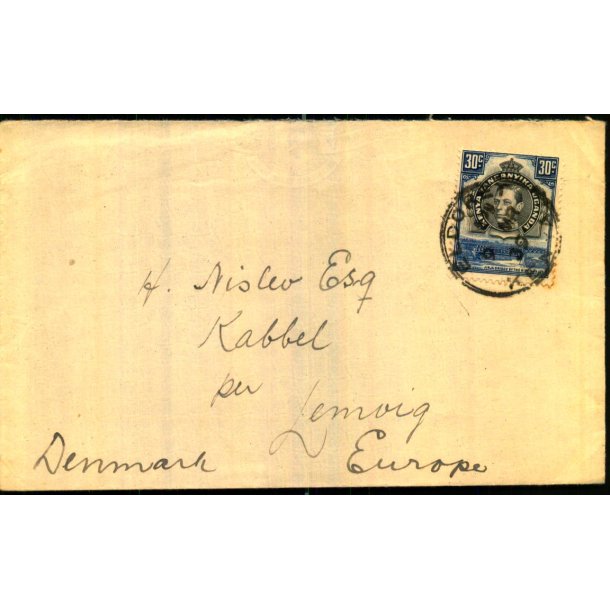 30c 30c
KENYA TANGANYIKA UGANDA
H. Nislev Esq
Kabbel
per Lemvig
Denmark Europe